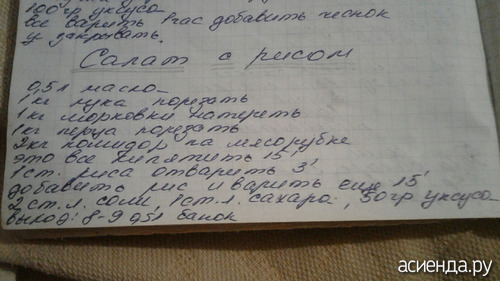 100гр уксуса
все варить 1час добавить чеснок
и закрывать.
Салат с рисом
0,5л масло
1кг лука порезать
1кг морковки натереть
1кг перца порезать
2кг помидор на мясорубке
это все кипятить 15'
1ст. риса отварить 3'
добавить рис и варить еще 15'
2ст.л. соли, 1ст.л. сахара, 50гр уксуса
выход: 8-9 0,5л банок
асиенда.ру